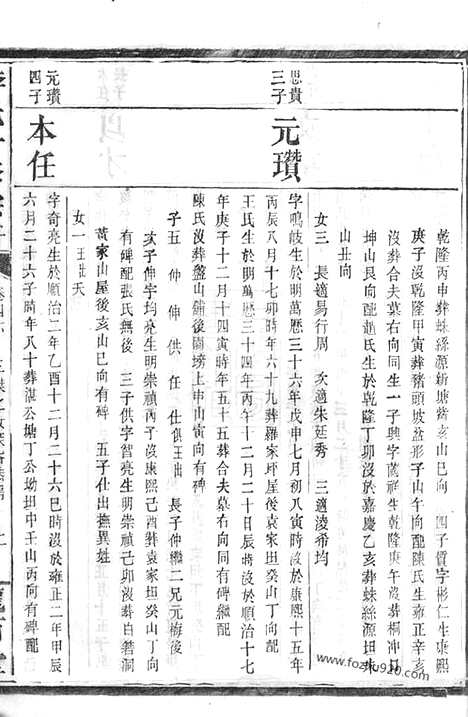 乾隆丙申葬蛛絲源新塘嵩亥山巳向 四子質字彬仁生康熙
庚子沒乾隆甲寅葬豬頭坡盆形子山午向配陳氏生雍正辛亥
沒葬合夫墓右向同生一子興字萬祥生乾隆庚午沒葬桐冲艮
坤山艮向配趙氏生於乾隆丁卯沒於嘉慶乙亥葬蛛絲源坦未
山丑向
女三 長適易行周 次適朱廷秀 三適淩希均
思貴
三子
元瓚
字鳴岐生於明萬歷三十六年戊申七月初八寅時沒於康熙十五年
丙辰八月十七卯時年六十九葬羅家坪屋後袁家坦癸山丁向配
王氏生於明萬歷三十四年丙午十二月二十日辰時沒於順治十七
年庚子十二月十四寅時年五十五葬合夫墓右向同有碑繼配
陳氏沒葬盤山鋪後園塝上申山寅向有碑
子五 仲 伸 供 任 仕俱王出 長子仲繼二兄元梅後
次子伸字均亮生明崇禎丙子沒康熙己酉葬袁家坦癸山丁向
有碑配張氏無後 三子供字智亮生明崇禎己卯沒葬白箬洞
黃家山屋後亥山巳向有碑 五子仕出撫異姓
女一王出夭
元瓚
四子
本任
字奇亮生於順治二年乙酉十二月二十六巳時沒於雍正二年甲辰
六月二十六子時年八十葬湛公塘丁公坳坦中壬山丙向有碑配